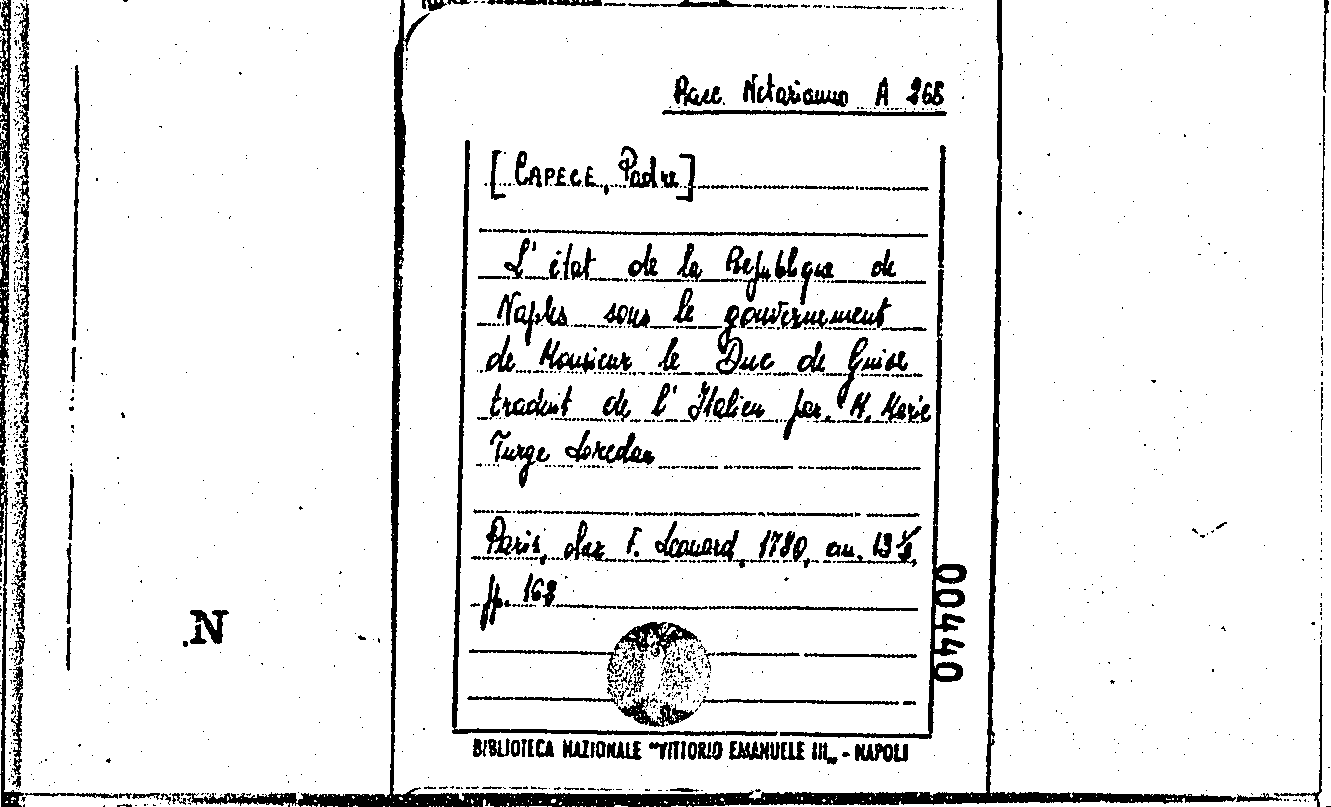 Racc. Notarianno A 268
[CAPECE, Padre]
L' état de la Republique de
Naples sous le gouvernement
de Monsieur le Duc de Guise
traduit de l' Italien par. M. Marie
Turge Loredan
Paris, chez F. Leonard, 1780, cm. 13
pp. 168
00440
N
BIBLIOTECA NAZIONALE "VITTORIO EMANUELE III„ - NAPOLI